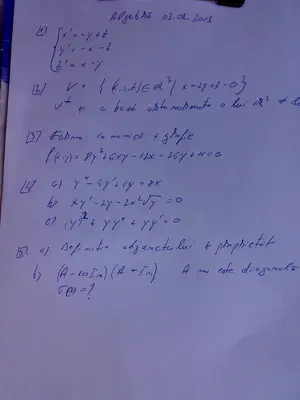 Algebră 03.02.2013
[1] { x' = -y + z
y' = -x - z
z' = x - y
[2] V = { (x,y,z) ∈ ℝ³ | x - 2y + z = 0 }
V⊥ și o bază ortonormată a lui ℝ³
[3] Forma canonică + grafic
f(x,y) = 8y² + 6xy - 12x - 26y + 11 = 0
[4] a) y'' - 4y' + 4y = 8x
b) xy' - 2y - 2x²√y = 0
c) (y')² + yy'' + yy' = 0
[5] a) Definiția + proprietăți
b) (A - 10Im)(A - Im) A nu este
σ(A) = ?